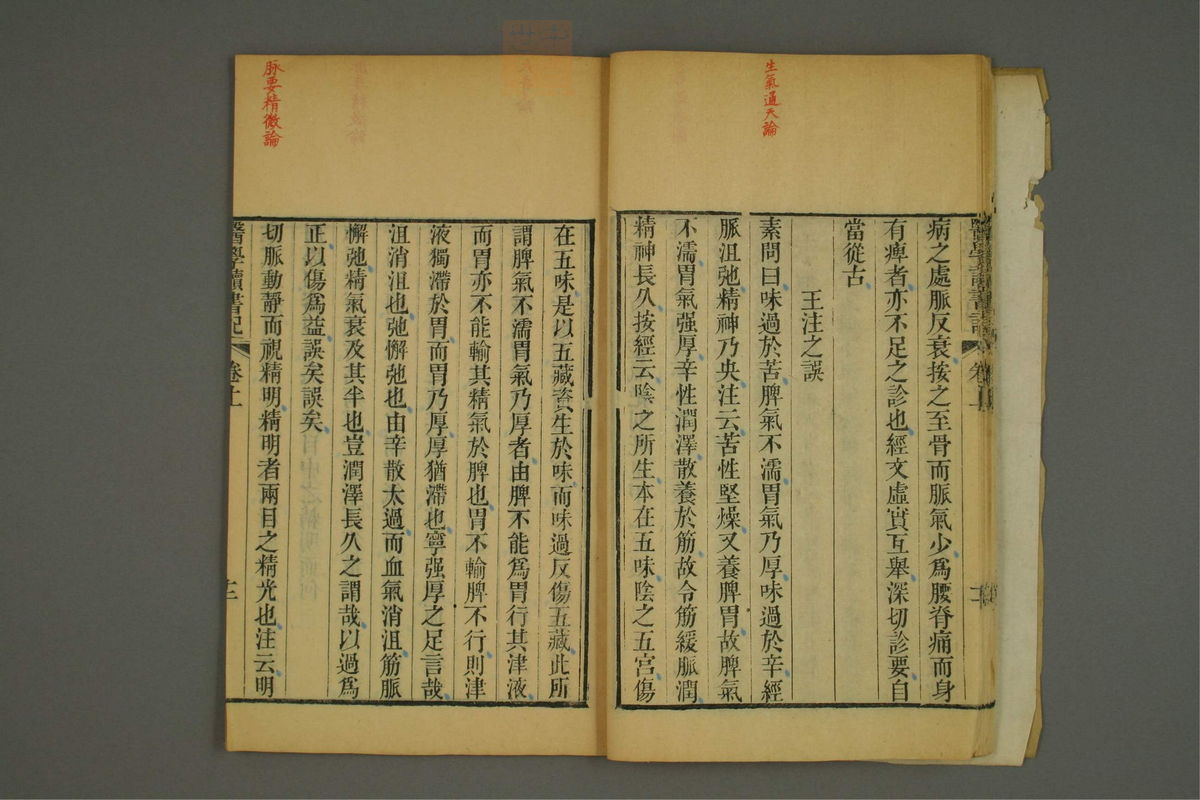 生氣通天論
病之處脈反衰按之至骨而脈氣少爲腰脊痛而身
有痺者亦不足之診也經文虛實互舉深切診要自
當從古
王注之誤
素問曰味過於苦脾氣不濡胃氣乃厚味過於辛經
脈沮弛精神乃央注云苦性堅燥又養脾胃故脾氣
不濡胃氣强厚辛性潤澤散養於筋故令筋緩脈潤
精神長久按經云陰之所生本在五味陰之五宮傷
在五味是以五藏資生於味而味過反傷五藏此所
謂脾氣不濡胃氣乃厚者由脾不能爲胃行其津液
而胃亦不能輸其精氣於脾也胃不輸脾不行則津
液獨滯於胃而胃乃厚厚猶滯也寧强厚之足言哉
沮消沮也弛懈弛也由辛散太過而血氣消沮筋脈
懈弛精氣衰及其半也豈潤澤長久之謂哉以過爲
正以傷爲益誤矣誤矣
脉要精微論
切脈動靜而視精明精明者兩目之精光也注云明
醫學讀書記
卷上